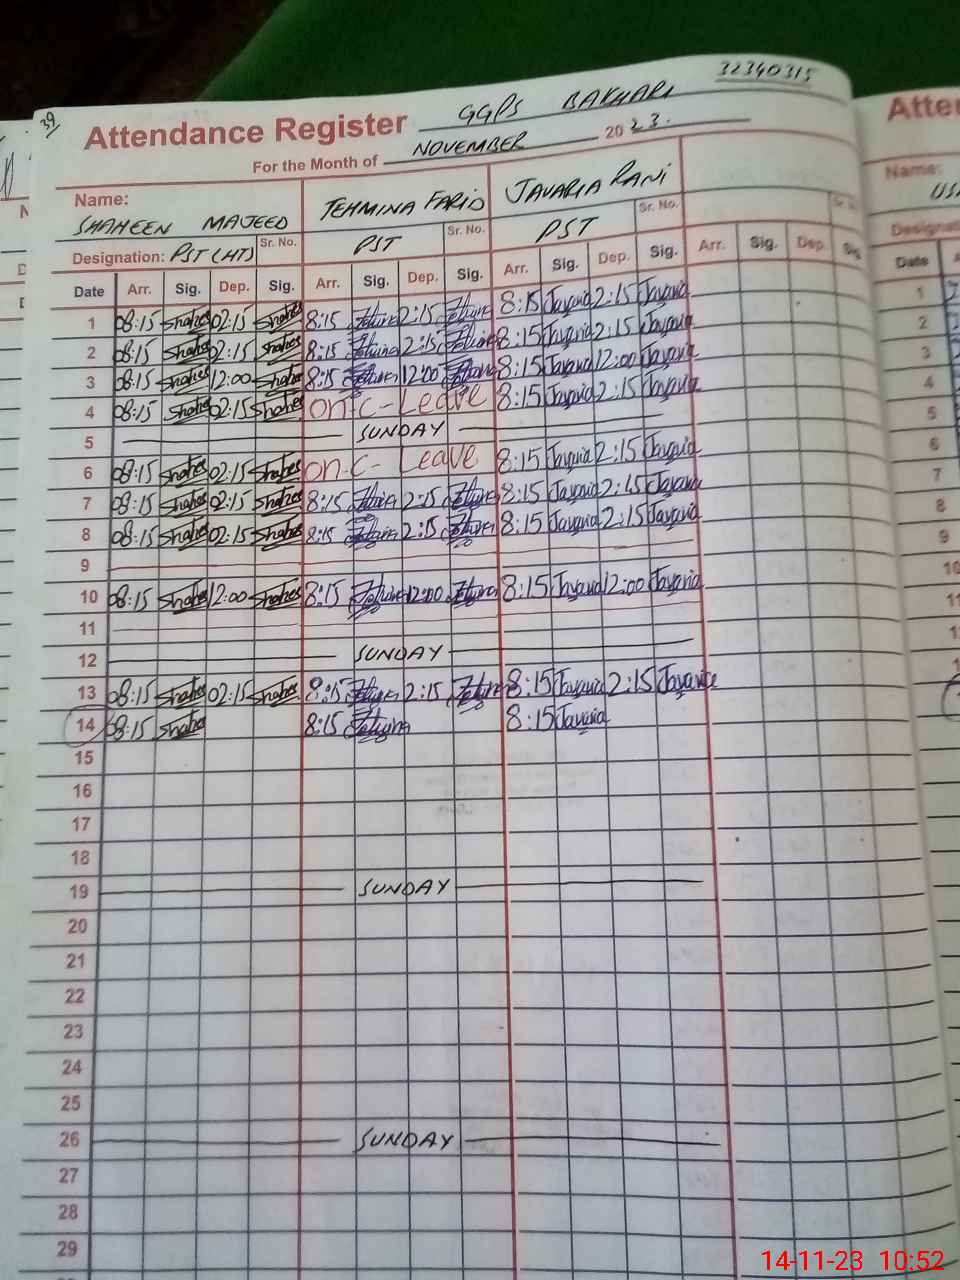 39
32340315
Attendance Register GGPS BAKHARI
For the Month of NOVEMBER 2023.
Name: SHAHEEN MAJEED TEHMINA FARID JAVARIA RANI
Designation: PST (HT) Sr. No. PST Sr. No. PST Sr. No.
Date Arr. Sig. Dep. Sig. Arr. Sig. Dep. Sig. Arr. Sig. Dep. Sig. Arr. Sig. Dep. Sig.
1 08:15 02:15 8:15 2:15 8:15 Javaria 2:15 Javaria
2 08:15 02:15 8:15 2:15 8:15 Javaria 2:15 Javaria
3 08:15 12:00 8:15 12:00 8:15 Javaria 12:00 Javaria
4 08:15 02:15 on C- Leave 8:15 Javaria 2:15 Javaria
5 SUNDAY
6 08:15 02:15 on C- Leave 8:15 Javaria 2:15 Javaria
7 08:15 02:15 8:15 2:15 8:15 Javaria 2:15 Javaria
8 08:15 02:15 8:15 2:15 8:15 Javaria 2:15 Javaria
9
10 08:15 12:00 8:15 12:00 8:15 Javaria 12:00 Javaria
11
12 SUNDAY
13 08:15 02:15 8:15 2:15 8:15 Javaria 2:15 Javaria
14 08:15 8:15 8:15 Javaria
15
16
17
18
19 SUNDAY
20
21
22
23
24
25
26 SUNDAY
27
28
29
Name:
Date
1
2
3
4
5
6
7
8
9
10
11
14-11-23 10:52